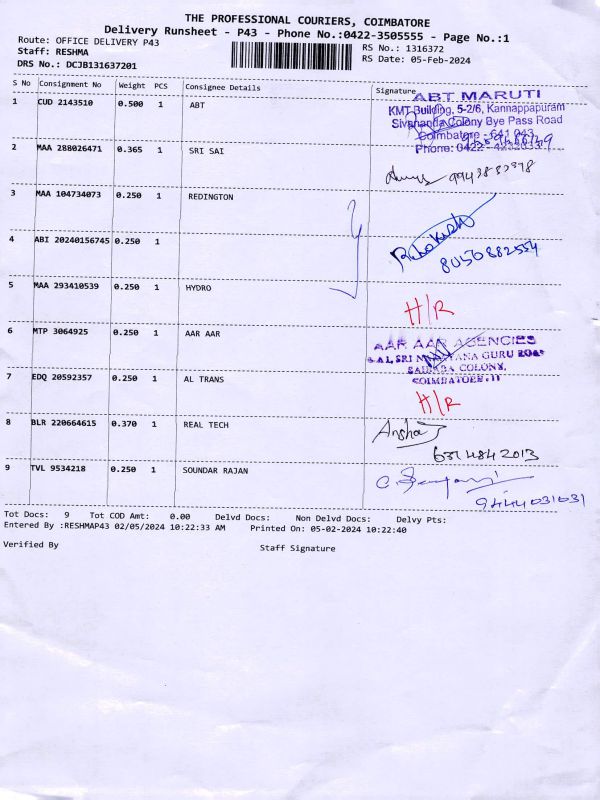 THE PROFESSIONAL COURIERS, COIMBATORE
Delivery Runsheet - P43 - Phone No.:0422-3505555 - Page No.:1
Route: OFFICE DELIVERY P43
RS No.: 1316372
Staff: RESHMA
RS Date: 05-Feb-2024
DRS No.: DCJB131637201
S No Consignment No Weight PCS Consignee Details Signature
1 CUD 2143510 0.500 1 ABT
ABT MARUTI
KMT Building, 5-2/6, Kannappapuram
Sivananda Colony Bye Pass Road
Coimbatore - 641 043
Phone: 0422 -
2 MAA 288026471 0.365 1 SRI SAI
3 MAA 104734073 0.250 1 REDINGTON
4 ABI 20240156745 0.250 1
8050882554
5 MAA 293410539 0.250 1 HYDRO
H/R
6 MTP 3064925 0.250 1 AAR AAR
AAR AAR AGENCIES
GURU ROAD
SAIBABA COLONY,
COIMBATORE-11
7 EDQ 20592357 0.250 1 AL TRANS
H/R
8 BLR 220664615 0.370 1 REAL TECH
Arsha
6374842013
9 TVL 9534218 0.250 1 SOUNDAR RAJAN
9444031031
Tot Docs: 9 Tot COD Amt: 0.00 Delvd Docs: Non Delvd Docs: Delvy Pts:
Entered By :RESHMAP43 02/05/2024 10:22:33 AM Printed On: 05-02-2024 10:22:40
Verified By
Staff Signature